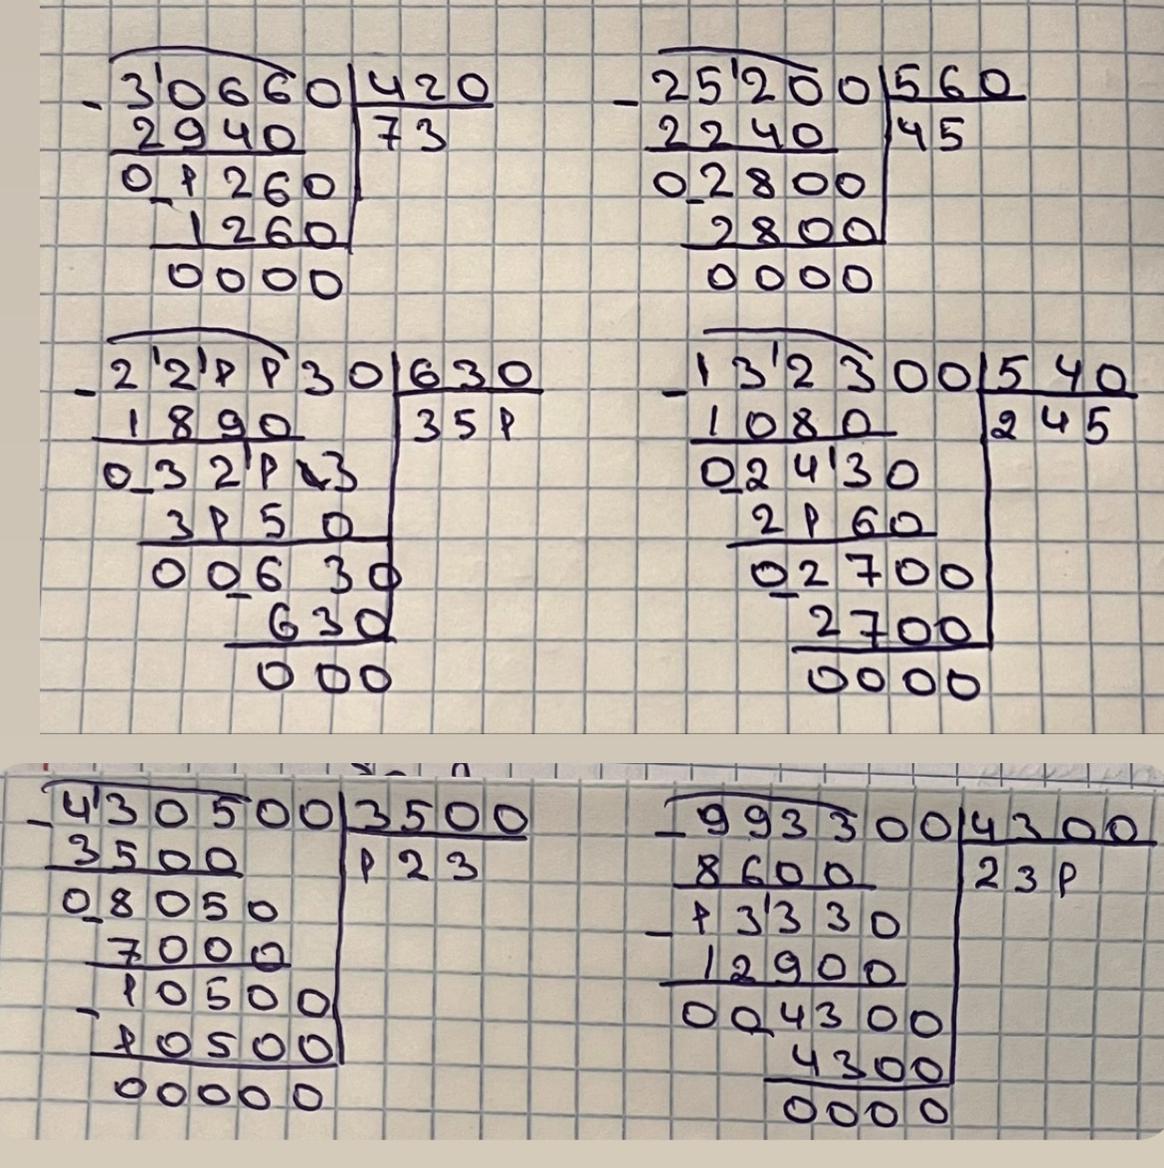 -3'0660|420
2940 73
0-1260
1260
0000
-25'200|560
2240 45
0-2800
2800
0000
-2'2'1130|630
1890 351
0-32'13
3150
00-630
630
000
-13'2300|540
1080 245
0-24'30
2160
0-2700
2700
0000
-4'30500|3500
3500 123
0-8050
7000
-10500
10500
00000
-993300|4300
8600 231
-13'330
12900
00-4300
4300
0000